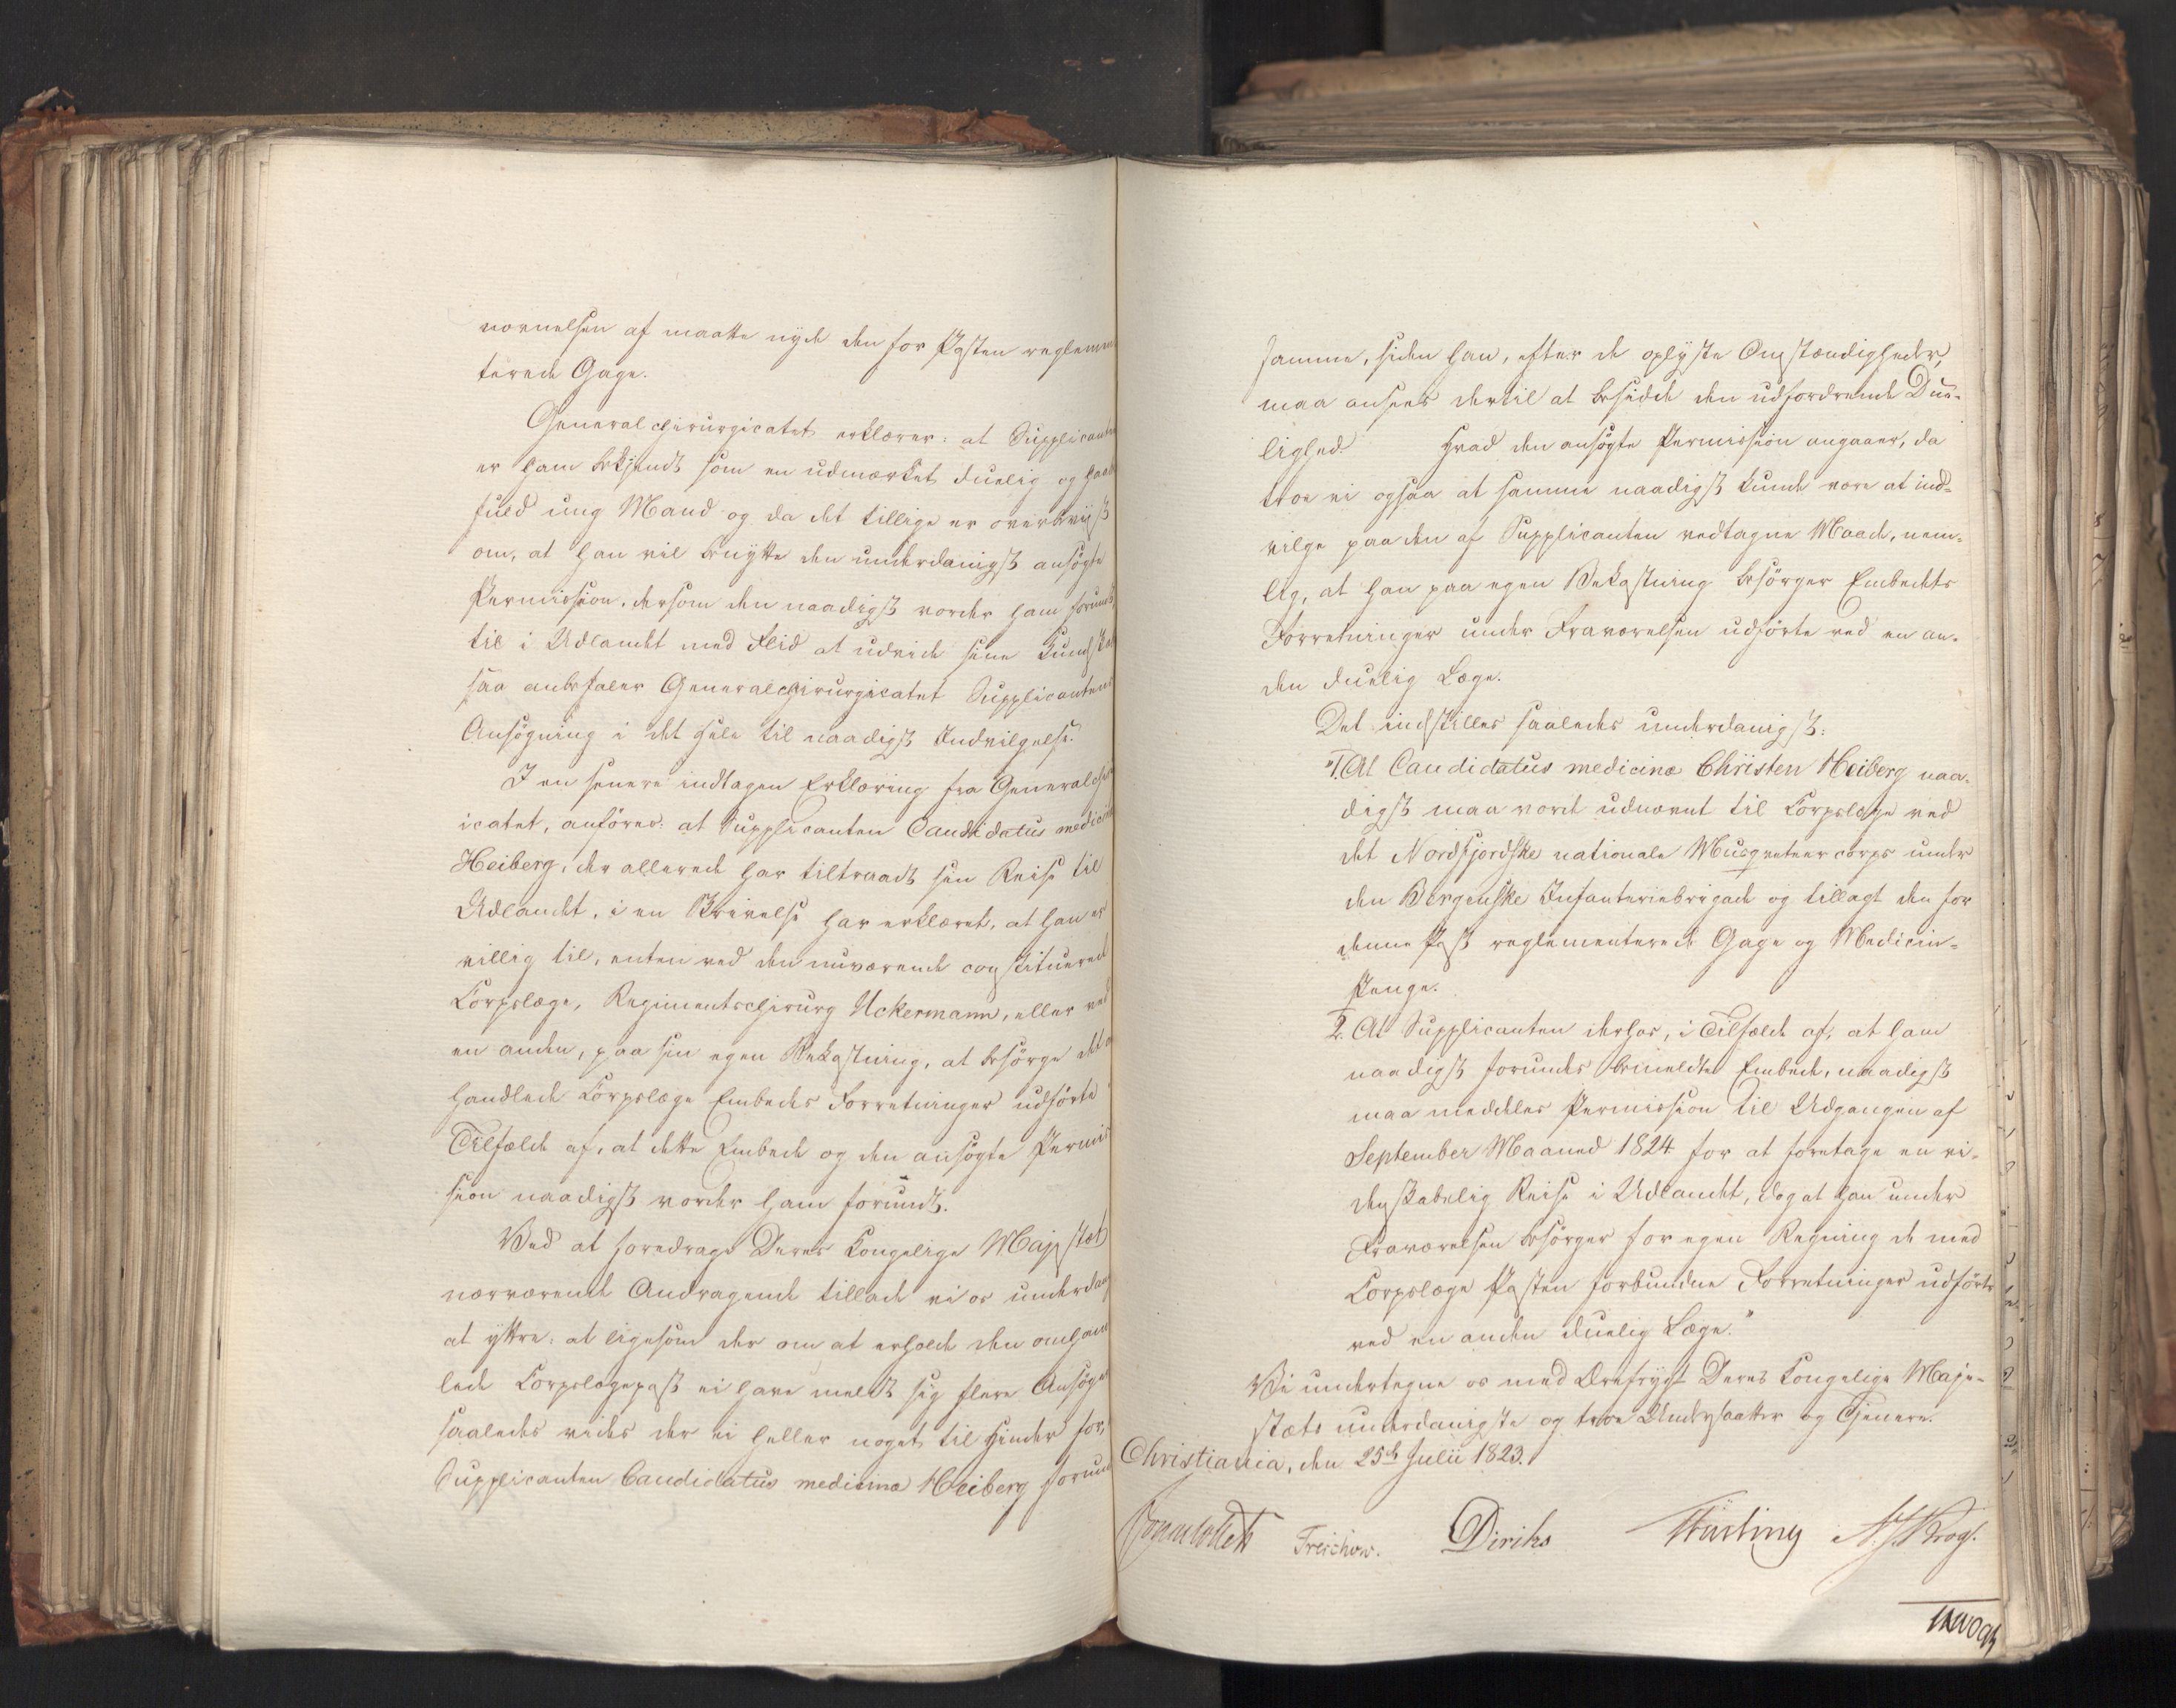 nævnelsen af maatte nyde den for Posten reglemen
terede Gage.
Generalchirurgicatet erklærer: at Supplicanten
er ham bekjendt som en udmærket duelig og haab
fuld ung Mand og da det tillige er overbeviist
om, at han vil benytte den underdanigst ansøgte
Permission, dersom den naadigst vorder ham forundt
til i Udlandet med Flid at udvide sine Kundskab
saa anbefaler Generalchirurgicatet Supplicantens
Ansøgning i det Hele til naadigst Indvilgelse.
I en senere indtagen Erklæring fra Generalchir
icatet, anføres: at Supplicanten Candidatus medicin
Heiberg, der allerede har tiltraadt sin Reise til
Udlandet, i en Skrivelse har erklæret, at han er
villig til, enten ved den nuværende constituerede
Corpslæge, Regimentschirurg Uckermann, eller ved
en anden, paa sin egen Bekostning, at besørge det
handlede Corpslæge Embedes Forretninger udførte
Tilfælde af, at dette Embede og den ansøgte Permis
sion naadigst vorder ham forundt.
Ved at foredrage Deres Kongelige Majestæt
nærværende Andragende tillade vi os underdan
at yttre: at ligesom der om at erholde den omhand
lede Corpslægepost ei have meldt sig flere Ansøgere
saaledes vides der ei heller noget til Hinder for,
Supplicanten Candidatus medicinæ Heiberg forund
samme, siden han, efter de oplyste Omstændigheder,
maa ansees dertil at besidde den udfordrende Due-
lighed. Hvad den ansøgte Permission angaaer, da
troe vi ogsaa at samme naadigst kunde være at ind-
vilge paa den af Supplicanten vedtagne Maade, nem-
lig, at han paa egen Bekostning besørger Embedets
Forretninger under Fraværelsen udførte ved en an-
den duelig Læge.
Det indstilles saaledes underdanigst:
"1. At Candidatus medicinæ Christen Heiberg naa-
digst maa vorde udnævnt til Corpslæge ved
det Nordfjordske nationale Musqueteercorps under
den Bergenske Infanteriebrigade og tillagt den for
denne Post reglementerede Gage og Medicin-
Penge.
2. At Supplicanten derhos, i Tilfælde af, at ham
naadigst forundes bemeldte Embede, naadigst
maa meddeles Permission til Udgangen af
September Maaned 1824 for at foretage en vi-
denskabelig Reise i Udlandet, dog at han under
Fraværelsen besørger for egen Regning de med
Corpslæge Posten forbundne Forretninger udførte
ved en anden duelig Læge."
Vi undertegne os med Ærefrygt Deres Kongelige Maje-
stæts underdanigste og troe Undersaatter og Tjenere.
Christiania, den 25de Julii 1823.
Treschow. Diriks